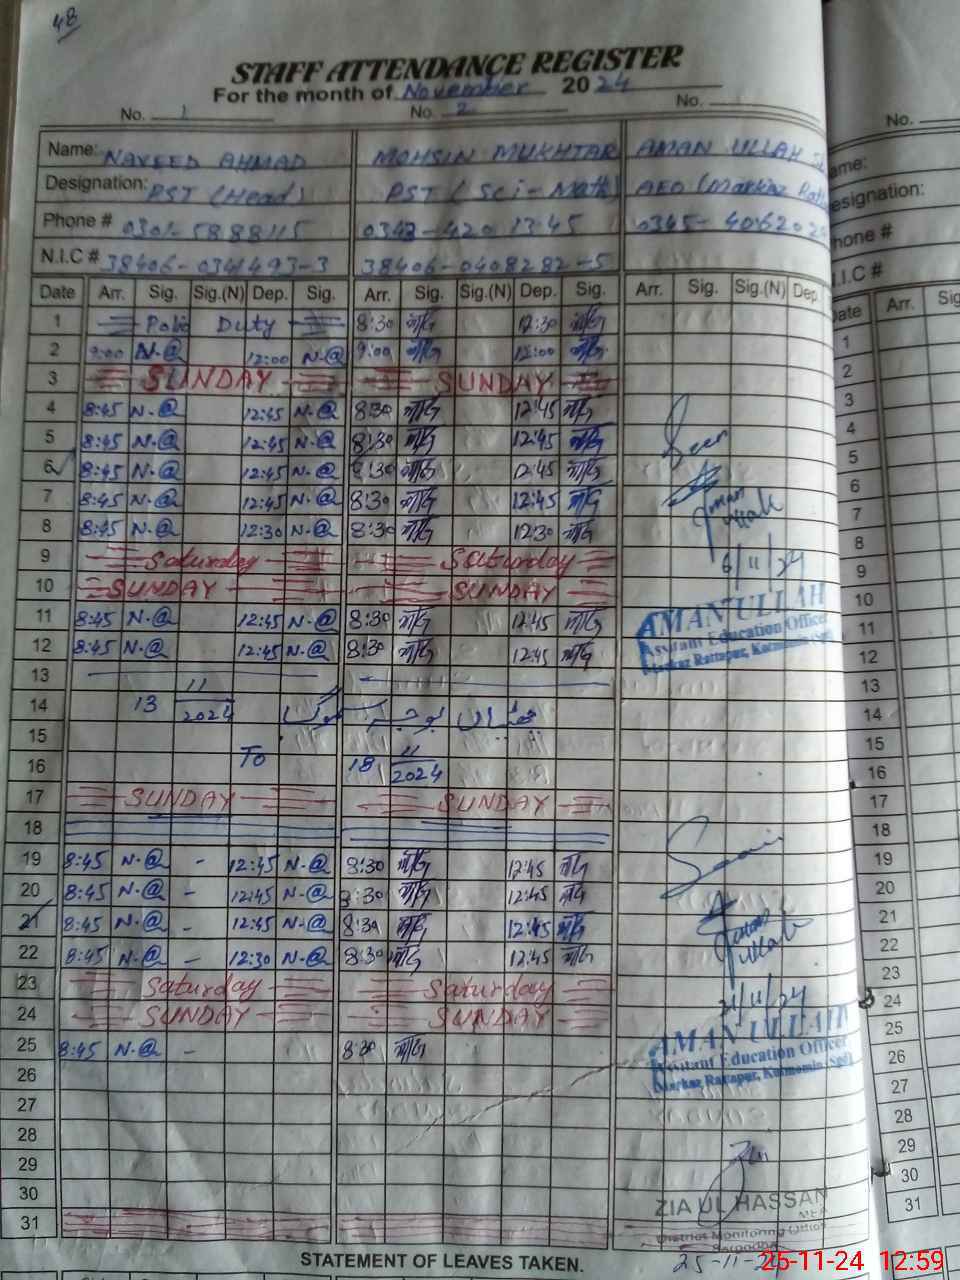 48
STAFF ATTENDANCE REGISTER
For the month of November 2024
No. 1 No. 2 No.
Name: NAVEED AHMAD MOHSIN MUKHTAR AMAN ULLAH
Designation: PST (Head) PST (Sci-Math) AEO (Markaz
Phone # 0301-5888115 0343-420 1345 0345-
N.I.C # 38406-0341493-3 38406-0408282-5
Date Arr. Sig. Sig.(N) Dep. Sig. Arr. Sig. Sig.(N) Dep. Sig. Arr. Sig. Sig.(N) Dep.
1 Polio Duty 8:30 12:30
2 9:00 N.@ 12:00 N.@ 9:00 12:00
3 SUNDAY SUNDAY
4 8:45 N.@ 12:45 N.@ 8:30 12:45
5 8:45 N.@ 12:45 N.@ 8:30 12:45
6 8:45 N.@ 12:45 N.@ 8:30 12:45
7 8:45 N.@ 12:45 N.@ 8:30 12:45
8 8:45 N.@ 12:30 N.@ 8:30 12:30
Aman ullah
9 Saturday Saturday
6/11/24
10 SUNDAY SUNDAY
11 8:45 N.@ 12:45 N.@ 8:30 12:45
12 8:45 N.@ 12:45 N.@ 8:30 12:45
AMAN ULLAH
Assistant Education Officer
Markaz Rattapur, Kotmomin (Sgd)
13
14 13 11/2024 چھٹیاں بوجہ سموگ
15
16 To 18 11/2024
17 SUNDAY SUNDAY
18
19 8:45 N.@ - 12:45 N.@ 8:30 12:45
20 8:45 N.@ - 12:45 N.@ 8:30 12:45
21 8:45 N.@ - 12:45 N.@ 8:30 12:45
22 8:45 N.@ - 12:30 N.@ 8:30 12:45
Aman ullah
23 Saturday Saturday
21/11/24
24 SUNDAY SUNDAY
25 8:45 N.@ - 8:30
AMAN ULLAH
Assistant Education Officer
Markaz Rattapur, Kotmomin (Sgd)
26
27
28
29
30
31
ZIA UL HASSAN
MEA
District Monitoring Officer
Sargodha
25-11-24
STATEMENT OF LEAVES TAKEN.
No.
ame:
esignation:
hone #
.I.C #
Date Arr. Sig
1
2
3
4
5
6
7
8
9
10
11
12
13
14
15
16
17
18
19
20
21
22
23
24
25
26
27
28
29
30
31
25-11-24 12:59